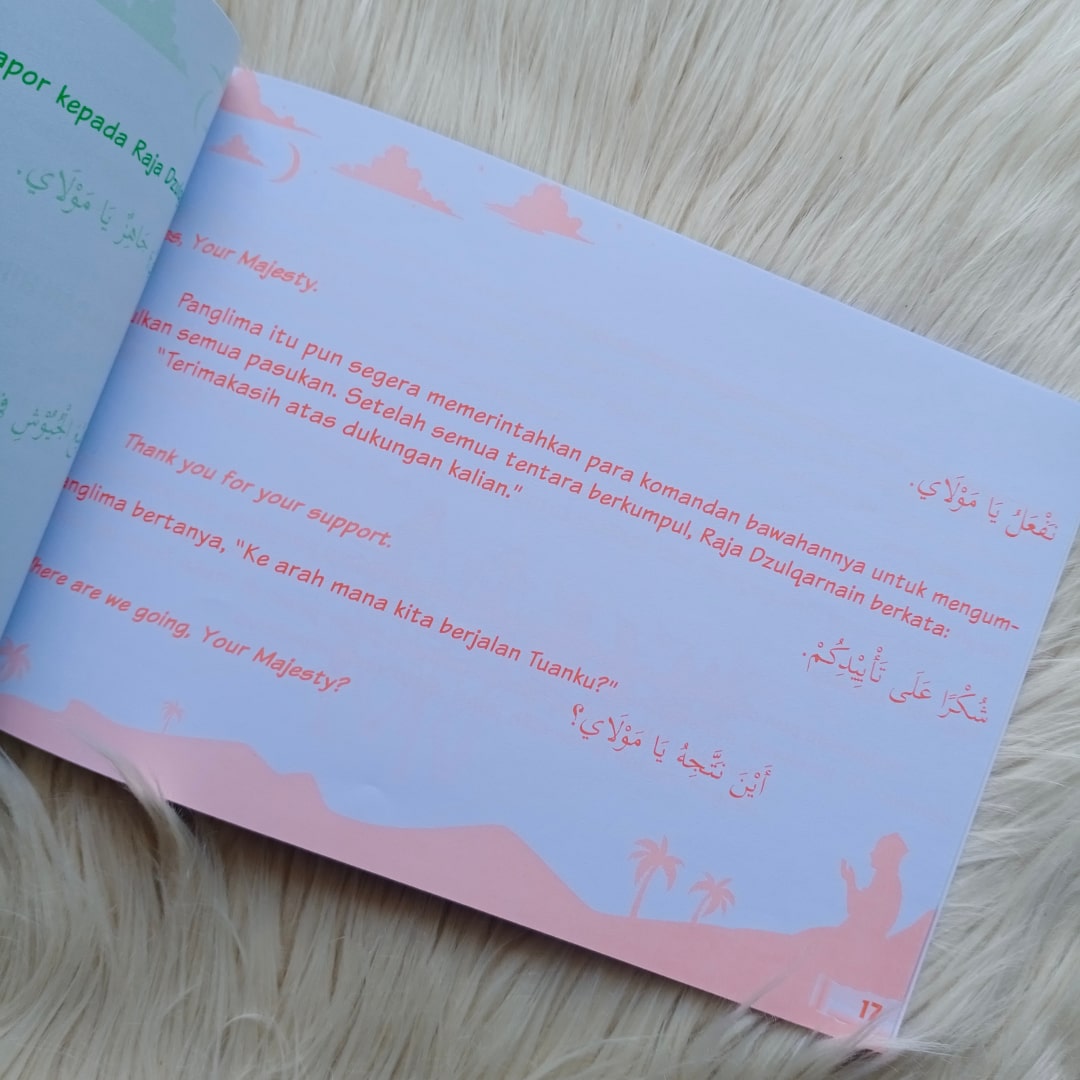 apor kepada Raja
جَاهِزٌ يَا مَوْلَايَ.
الْجُيُوْشِ
es, Your Majesty.
نَفْعَلُ يَا مَوْلَايَ.
Panglima itu pun segera memerintahkan para komandan bawahannya untuk mengum-
ulkan semua pasukan. Setelah semua tentara berkumpul, Raja Dzulqarnain berkata:
"Terimakasih atas dukungan kalian."
Thank you for your support.
شُكْرًا عَلَى تَأْيِيْدِكُمْ.
anglima bertanya, "Ke arah mana kita berjalan Tuanku?"
here are we going, Your Majesty?
أَيْنَ نَتَّجِهُ يَا مَوْلَايَ؟
17